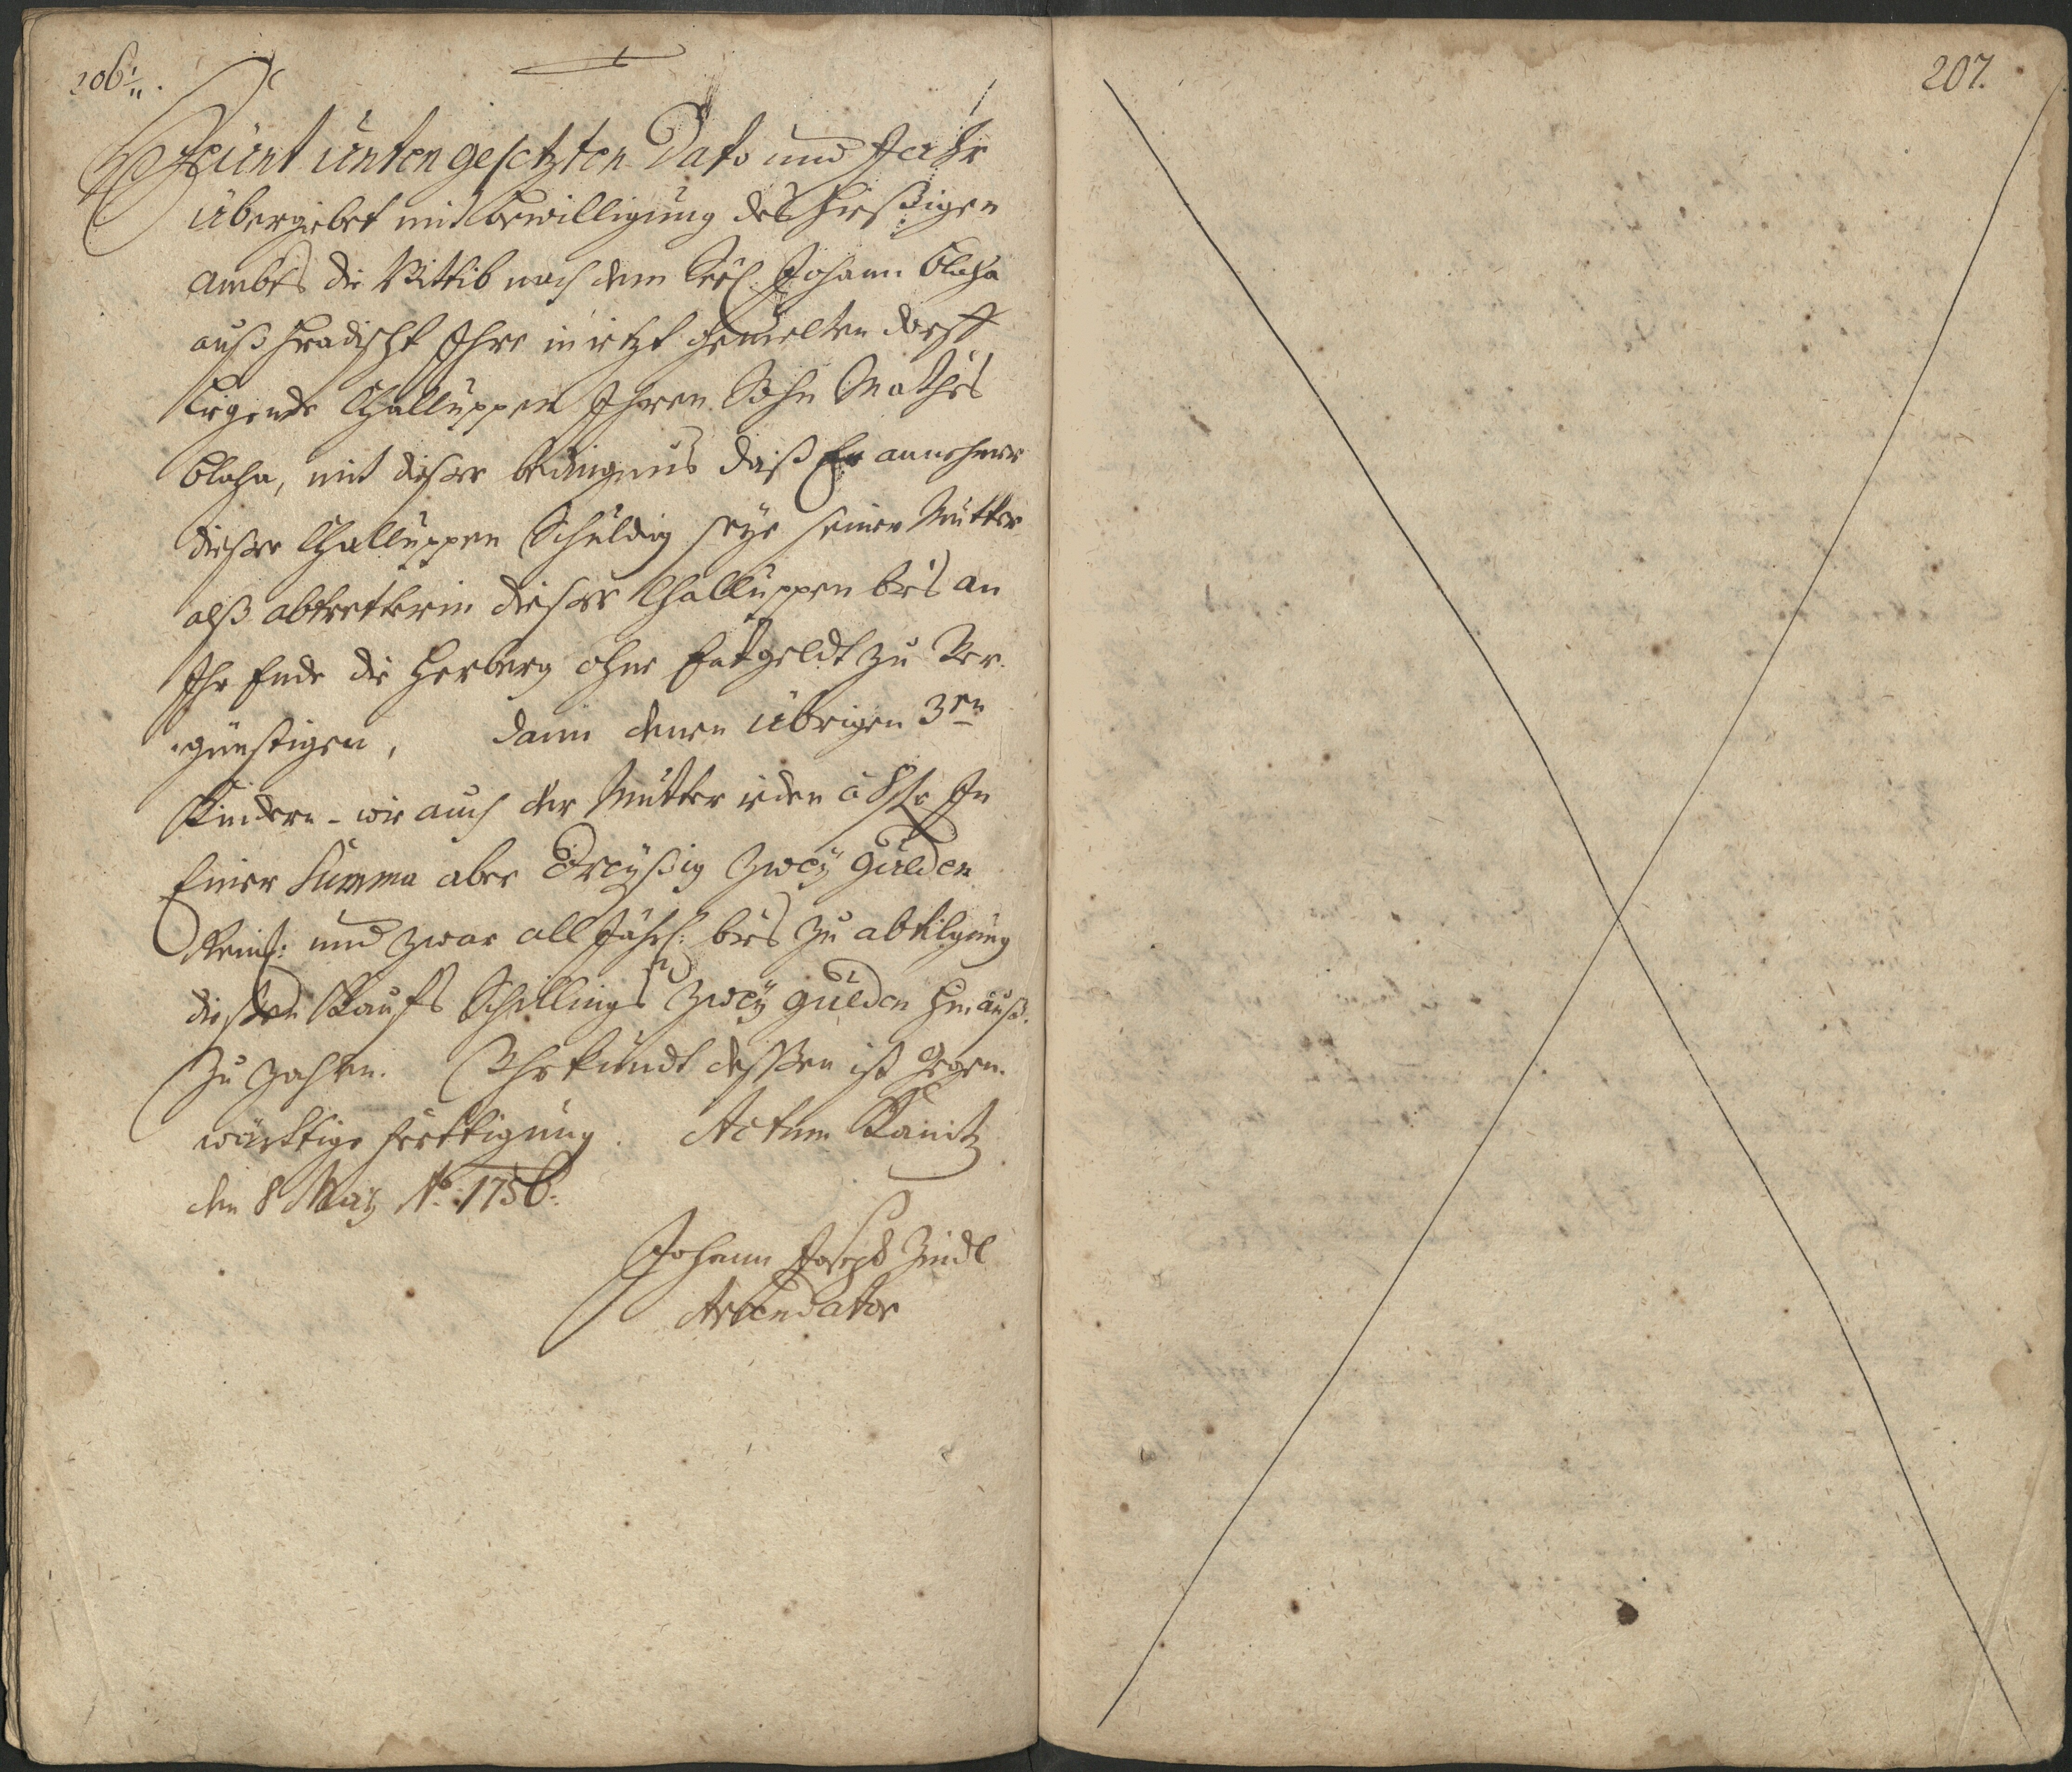 206.
Heünt ünten gesetzten Dato und Jahr
übergiebet mit bewilligung des hießigen
ambts die Wittib nach dem Seel: Johann Blaha
auß Hradischt Ihre in ietzt gemelten dorff
Liegende Challuppen Ihren Sohn Mathes
Blaha, mit dießer bedingnus daß Er annehmer
dießer Challuppen Schuldig seye seiner Mutter
alß abtretterin dießer Challuppen bies an
Ihr Ende die Herberg ohne Entgeldt zu Ver-
günstigen, dann denen übrigen 3en
Kindern - wie auch der Mutter ieden à 8 fl. In
Einer Summa aber Dreyßig Zwey gulden
Rein: und zwar all Jährl: bies zu abtilgung
dießen Kaufs Schillings Zwey gulden hinauß
zu zahlen. Uhrkundt deßßen ist gegen-
wärttige ferttigung. Actum Kanitz
den 8 May Ao. 1756.
Johann Joseph Zindl
Arrendator
207.